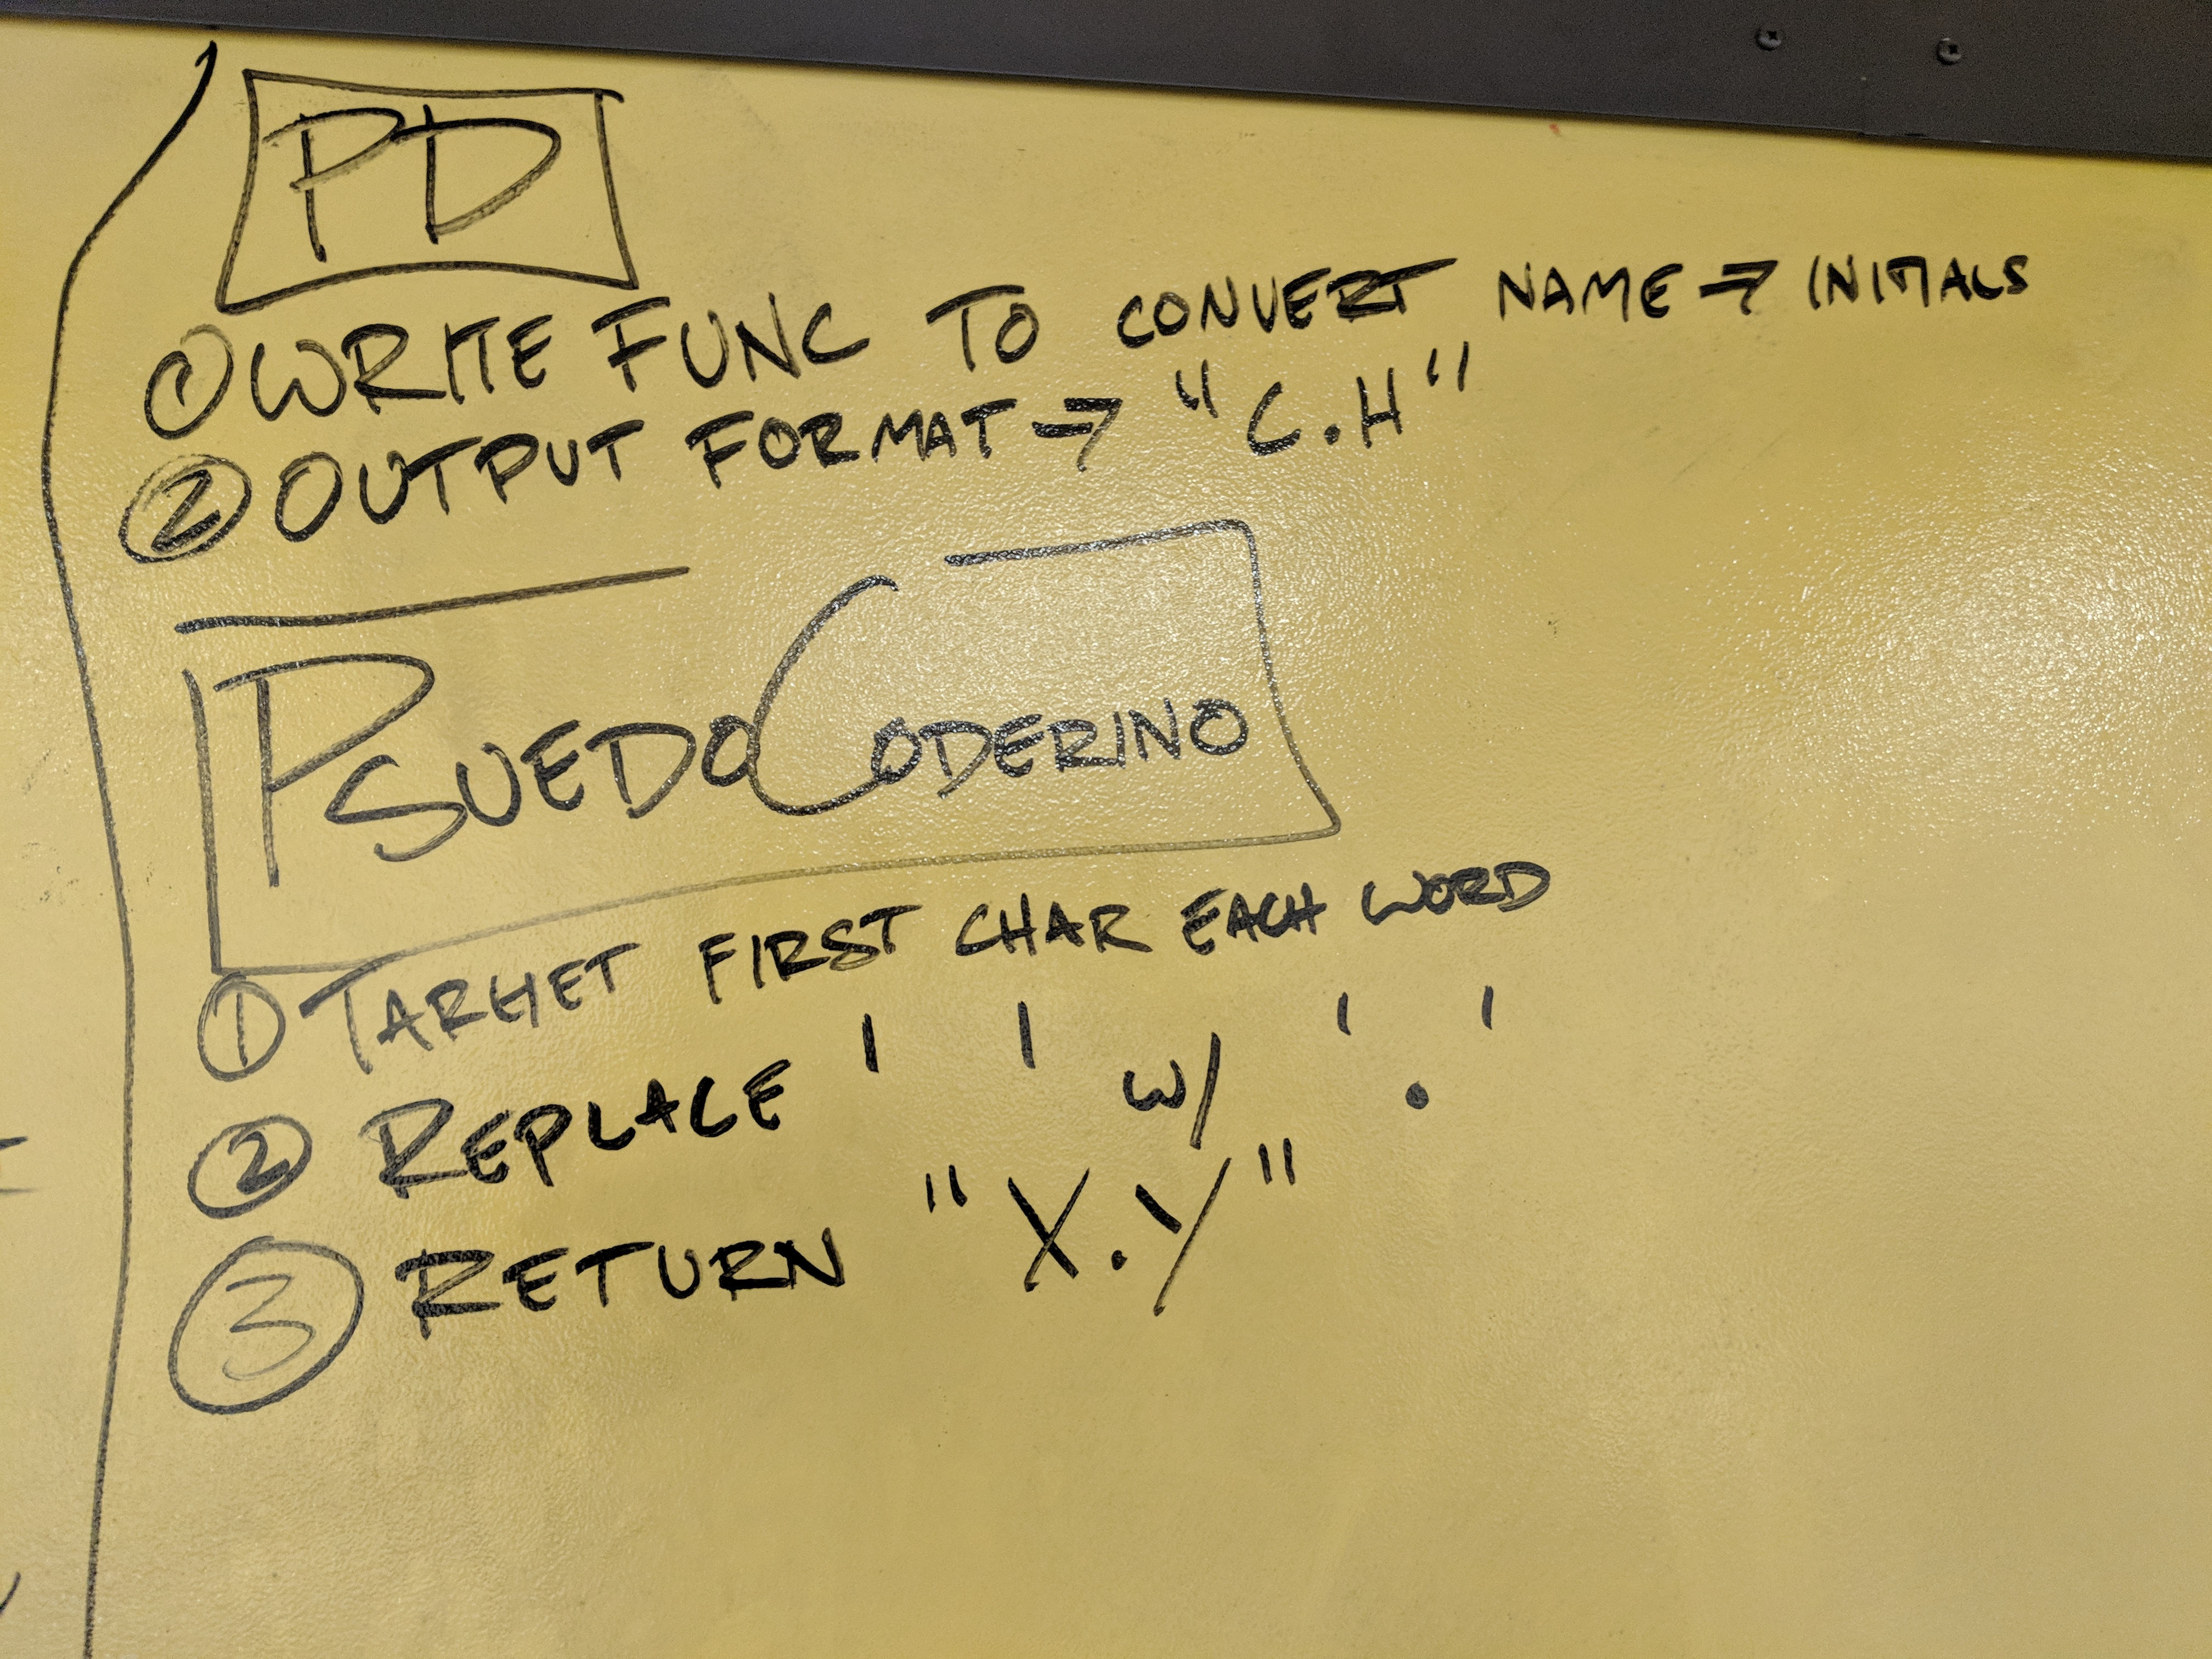 PD
① WRITE FUNC TO CONVERT NAME => INITIALS
② OUTPUT FORMAT => "C.H"
PSUEDOCODERINO
① TARGET FIRST CHAR EACH WORD
② REPLACE ' ' W/ '.'
③ RETURN "X.Y"